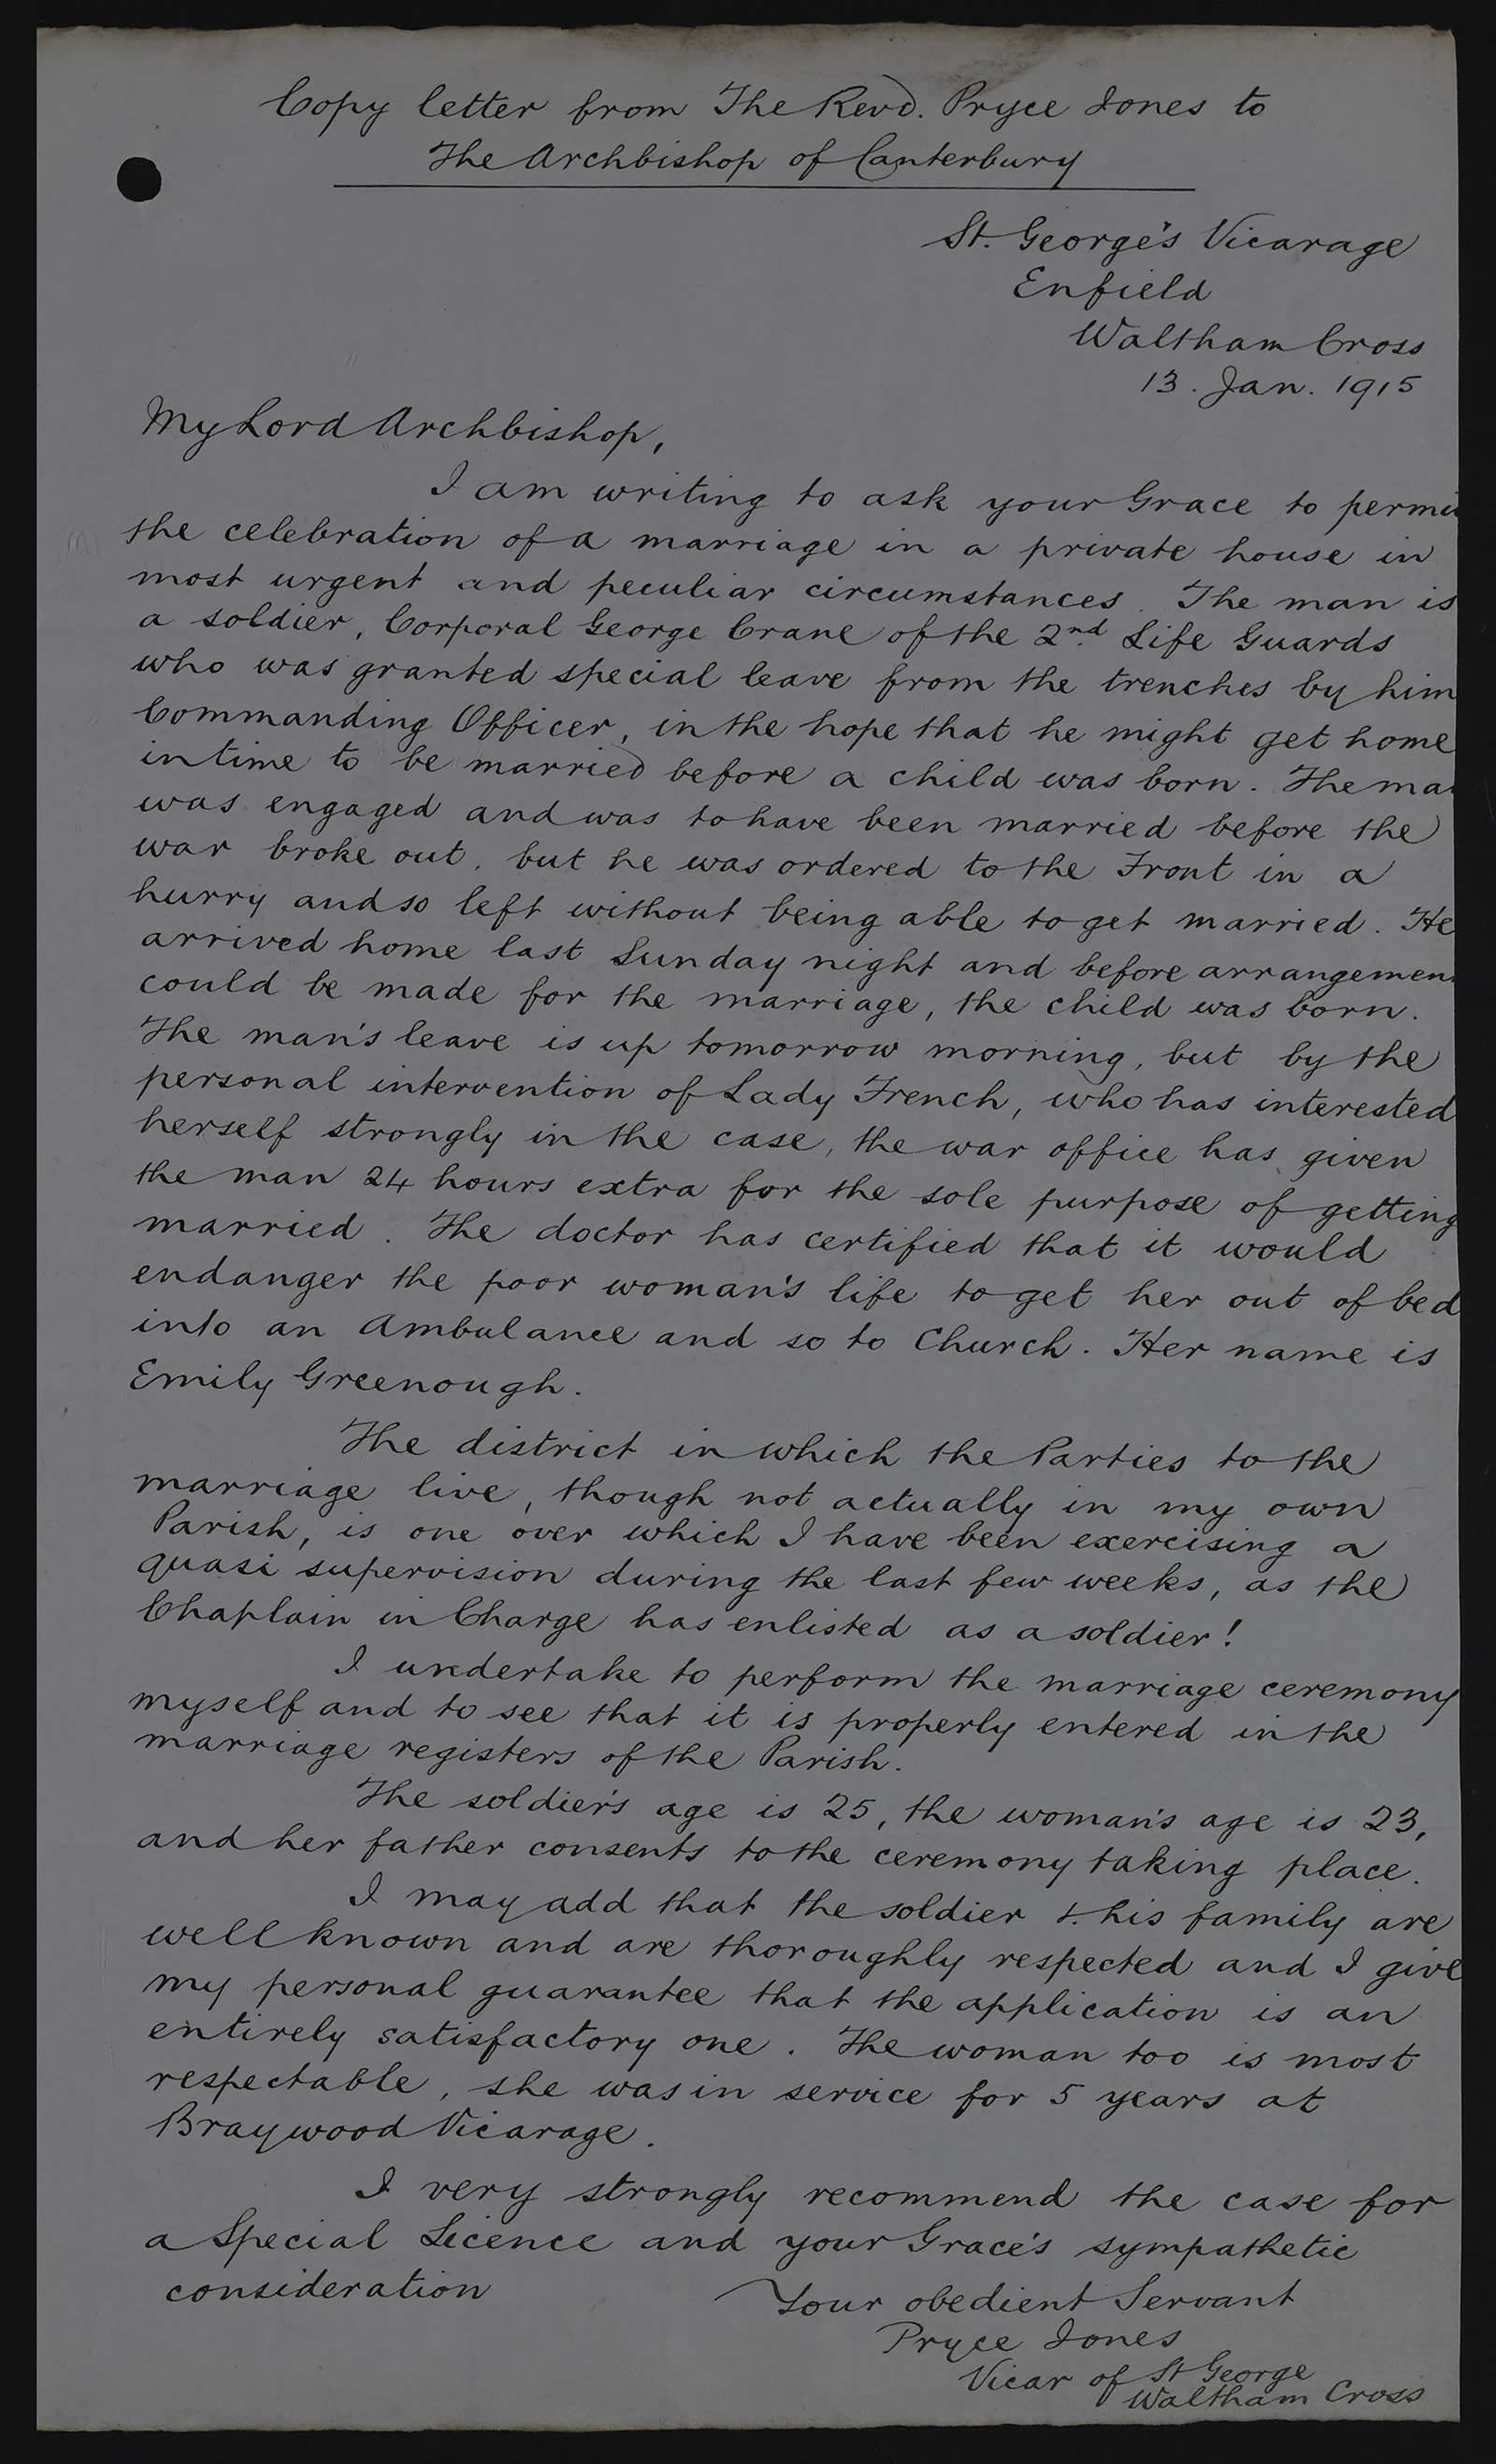 Copy letter from The Revd. Pryce Jones to
The Archbishop of Canterbury
St. George's Vicarage
Enfield
Waltham Cross
13. Jan. 1915
My Lord Archbishop,
I am writing to ask your Grace to permi
the celebration of a marriage in a private house in
most urgent and peculiar circumstances. The man is
a soldier, Corporal George Crane of the 2nd Life Guards
who was granted special leave from the trenches by him
Commanding Officer, in the hope that he might get home
in time to be married before a child was born. The ma
was engaged and was to have been married before the
war broke out, but he was ordered to the Front in a
hurry and so left without being able to get married. He
arrived home last Sunday night and before arrangemen
could be made for the marriage, the child was born.
The man's leave is up tomorrow morning, but by the
personal intervention of Lady French, who has interested
herself strongly in the case, the war office has given
the man 24 hours extra for the sole purpose of getting
married. The doctor has certified that it would
endanger the poor woman's life to get her out of bed
into an Ambulance and so to Church. Her name is
Emily Greenough.
The district in which the Parties to the
marriage live, though not actually in my own
Parish, is one over which I have been exercising a
quasi supervision during the last few weeks, as the
Chaplain in Charge has enlisted as a soldier!
I undertake to perform the marriage ceremony
myself and to see that it is properly entered in the
marriage registers of the Parish.
The soldier's age is 25, the woman's age is 23,
and her father consents to the ceremony taking place.
I may add that the soldier & his family are
well known and are thoroughly respected and I give
my personal guarantee that the application is an
entirely satisfactory one. The woman too is most
respectable, she was in service for 5 years at
Braywood Vicarage.
I very strongly recommend the case for
a Special Licence and your Grace's sympathetic
consideration
Your obedient Servant
Pryce Jones
Vicar of St George
Waltham Cross